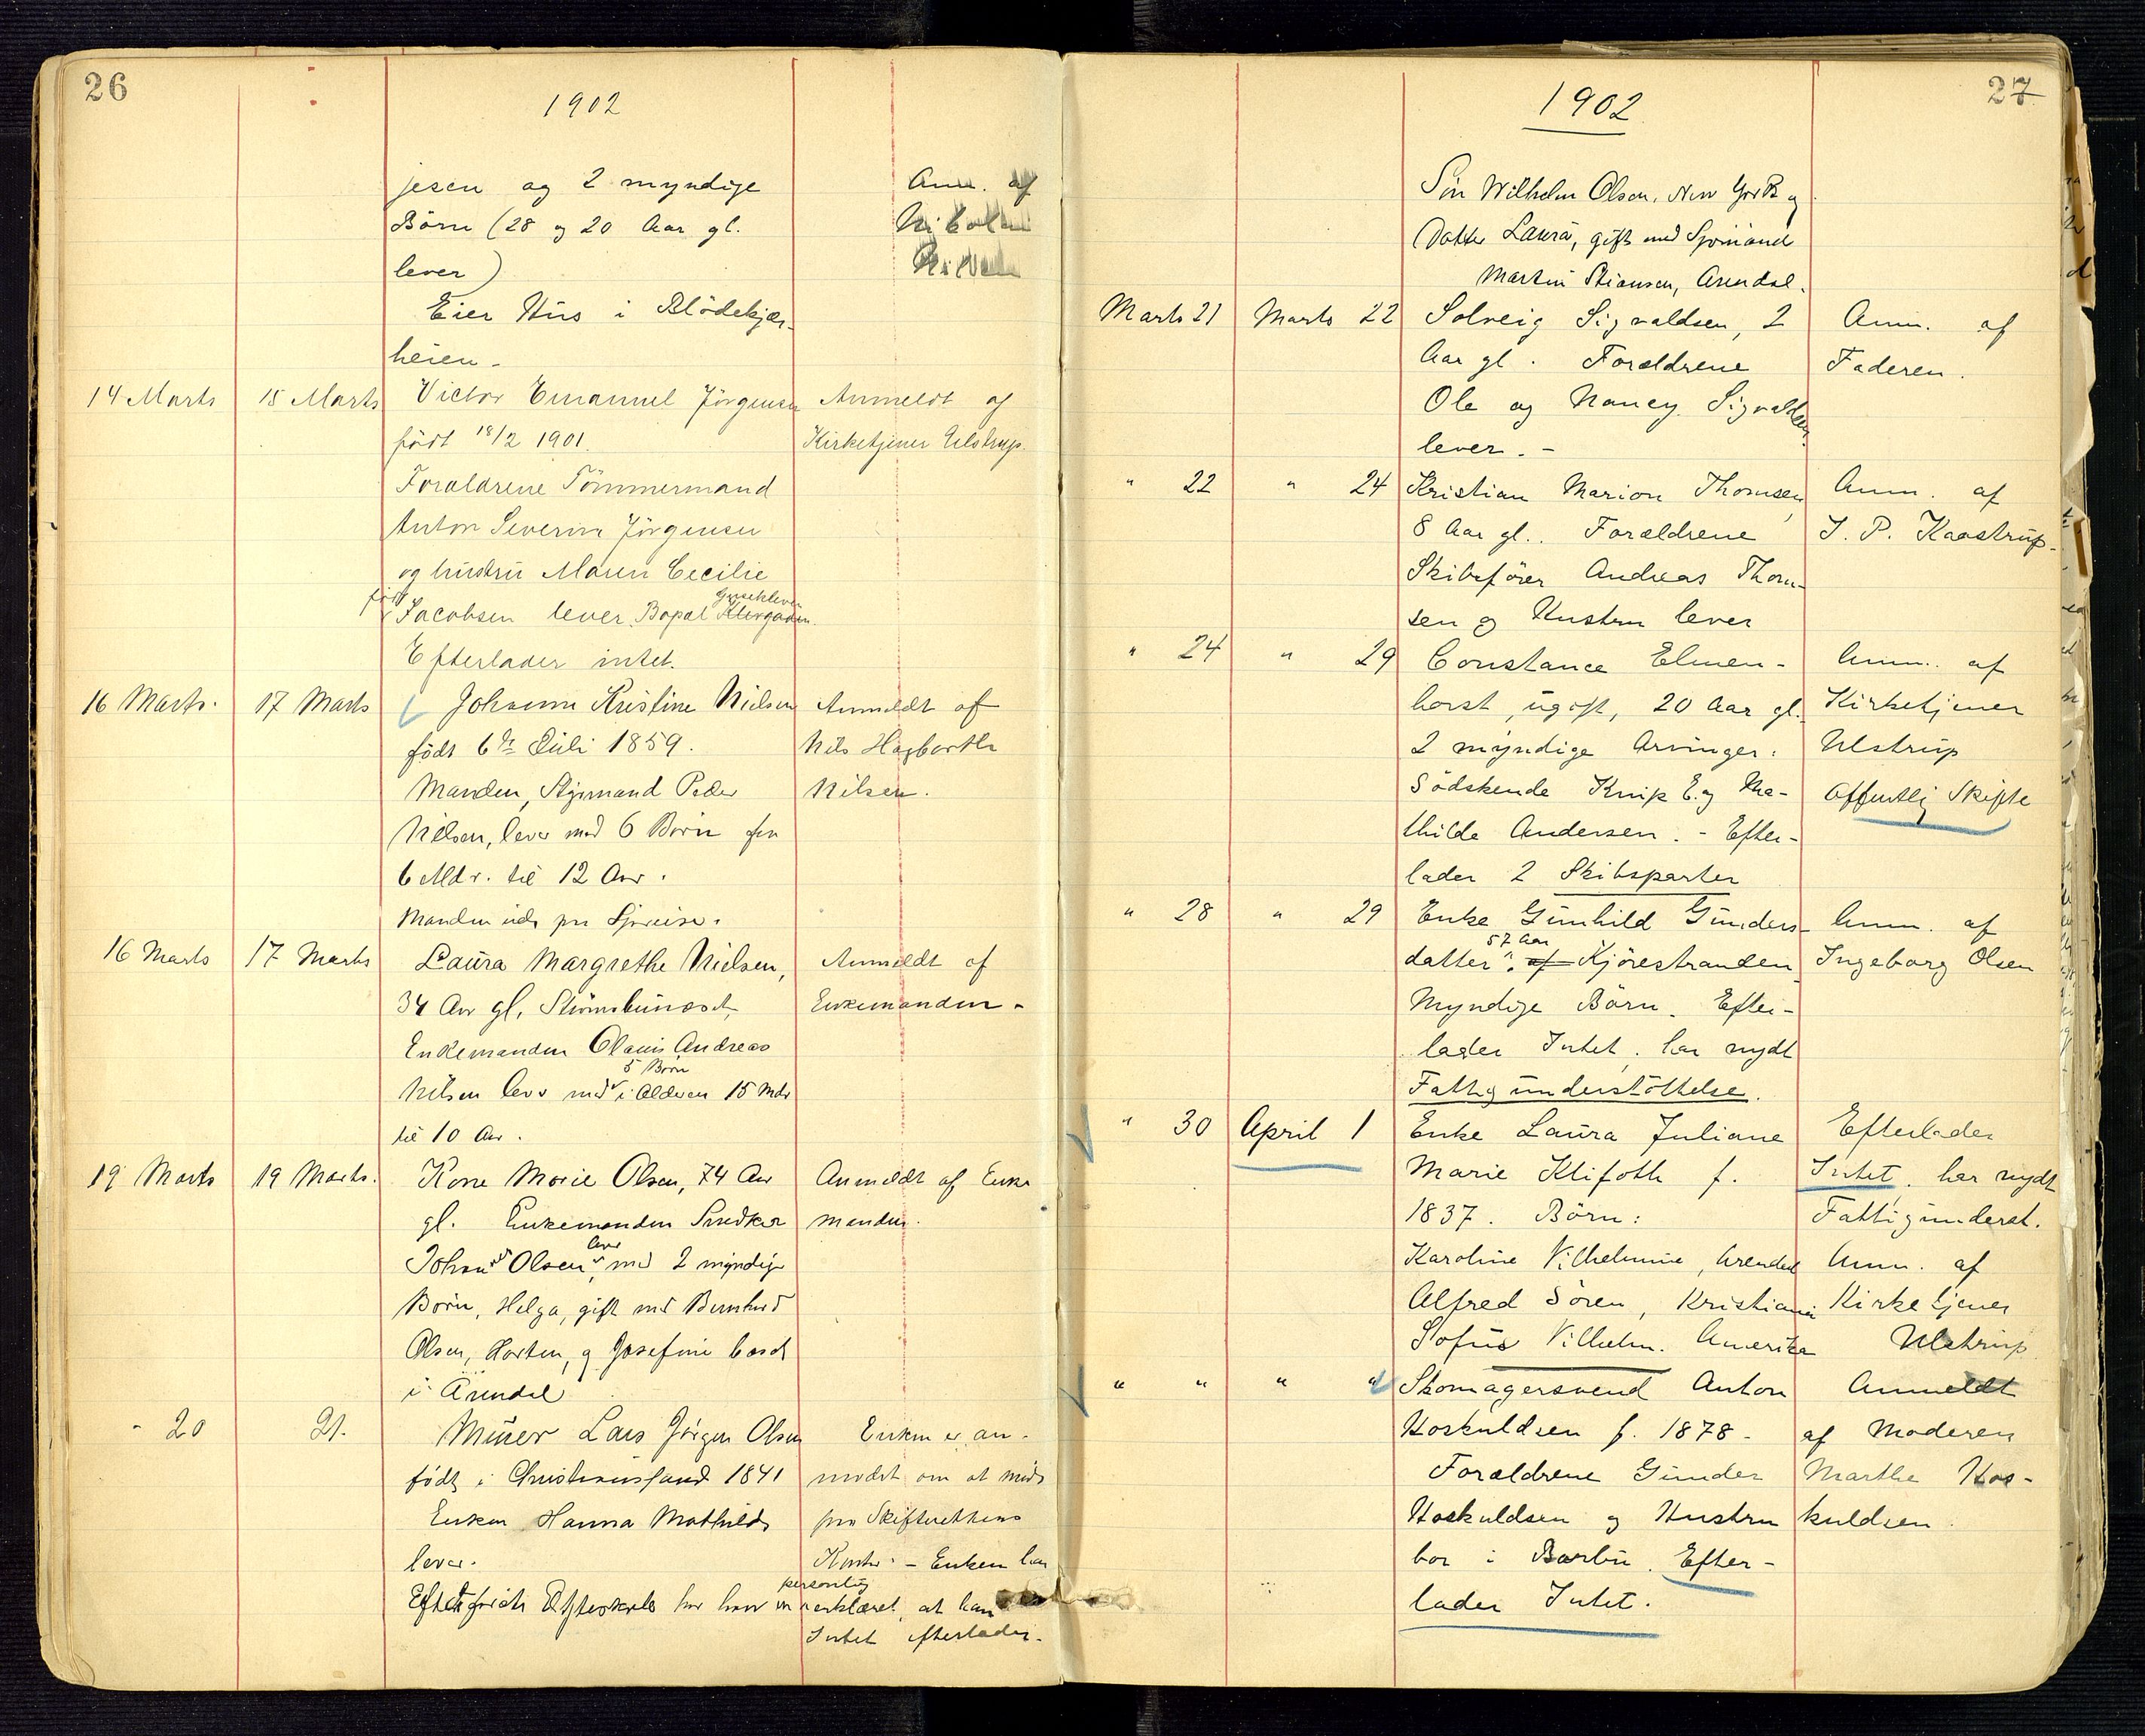 26
1902
jesen og 2 myndige
Börn (28 og 20 Aar gl.
lever)
Eier Hus i Blödekjær-
heien.
Anm. af
14 Marts 15 Marts Victor Emanuel Jörgensen Anmeldt af
født 18/2 1901. Kirketjener Ulstrup.
Forældrene Tömmermand
Anton Severin Jörgensen
og hustru Maren Cecilie
født Jacobsen lever. Bopæl
Efterlader intet.
16 Marts. 17 Marts Johanne Kristine Nielsen Anmeldt af
født 6te Juli 1859. Nils Hagbarth
Manden, Styrmand Peder Nilsen.
Nilsen, lever med 6 Börn fra
6 Mdr. til 12 Aar.
Manden ude paa Sjöreise.
16 Marts 17 Marts Laura Margrethe Nielsen, Anmeldt af
34 Aar gl, Strömsbunæset, Enkemanden.
Enkemanden Olaus Andreas
Nilsen lever med 5 Börn i Alderen 15 Mdr
til 10 Aar.
19 Marts 19 Marts. Kone Marie Olsen, 74 Aar Anmeldt af Enke
gl. Enkemanden Snedker manden.
Johan Olsen lever, med 2 myndige
Börn, Helga, gift med Bernhard
Olsen, Horten, og Josefine bosat
i Arendal
" 20 21. Murer Lars Jörgen Olsen Enken er an-
født i Christianssand 1841 modet om at möde
Enken Hanna Mathilde paa Skifterettens
lever. Kontor. - Enken har
personlig erklæret, at han
Intet efterlader.
27
1902
Sön Wilhelm Olsen, New York og
Datter Laura, gift med Sjömand
Martin Stiansen, Arendal.
Marts 21 Marts 22 Solveig Sigvaldsen, 2 Anm. af
Aar gl. Forældrene Faderen.
Ole og Nancy Sigvaldsen
lever. -
" 22 " 24 Kristian Marion Thomsen, Anm. af
8 Aar gl.. Forældrene J. P. Kaastrup.
Skibsfører Andreas Thom-
sen og Hustru lever
" 24 " 29 Constance Elmen- Anm. af
horst, ugift, 20 Aar gl. Kirketjener
2 myndige Arvinger: Ulstrup
Södskende Knip E. og Ma- Offentlig Skifte
thilde Andersen. - Efter-
lader 2 Skibsparter
" 28 " 29 Enke Gunhild Gunders- Anm. af
datter 57 Aar af Kjörestranden Ingeborg Olsen
Myndige Börn. Efter-
lader Intet. har nydt
Fattigunderstöttelse.
" 30 April 1 Enke Laura Juliane Efterlader
Marie Klifoth f. Intet. har nydt
1837. Börn: Fattigunderst.
Karoline Vilhelmine, Arendal Anm. af
Alfred Sören, Kristiania Kirketjener
Sofus Vilhelm. Amerika Ulstrup
" " " " Skomagersvend Anton Anmeldt
Hoskuldsen f. 1878. af Moderen
Forældrene Gunder Marthe Hos-
Hoskuldsen og Hustru kuldsen.
bor i Barbu. Efter-
lader Intet.